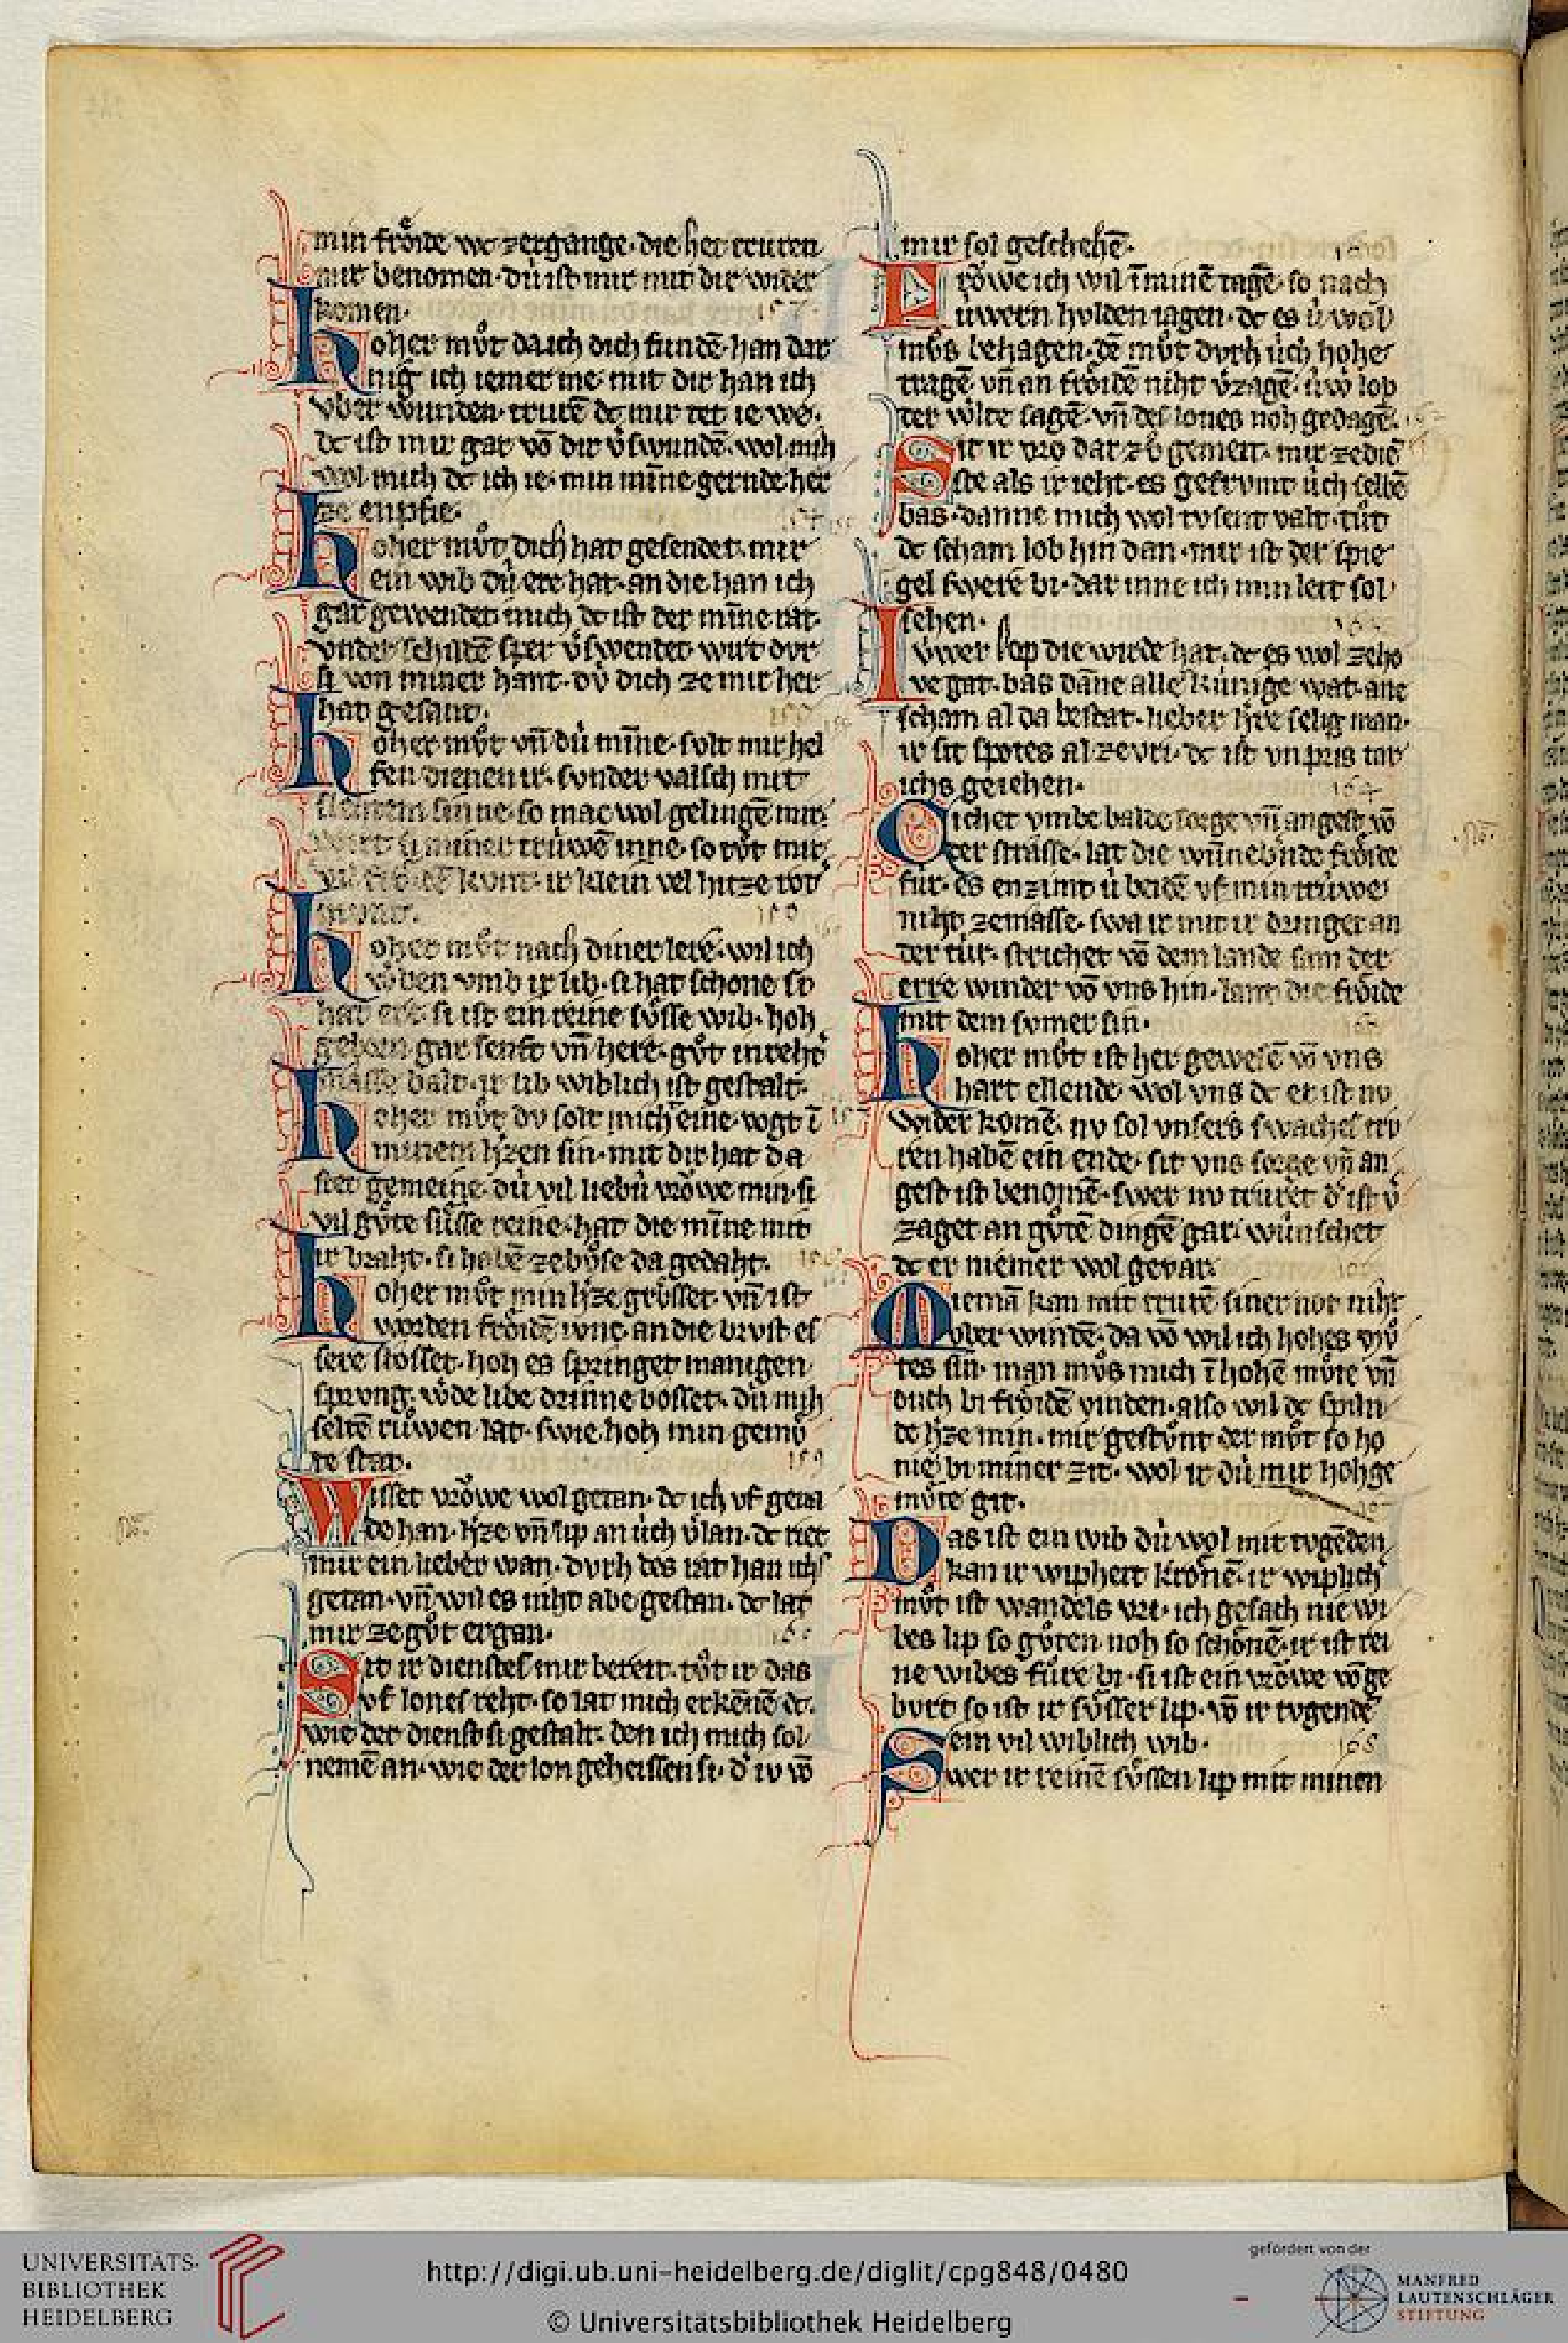 min froͤide wc zergange· die het truren
mir benomen· dú ist mir mit dir wider
komen·
hoher muͦt da ich dich fundē· han dar
nig ich iemer me· mit dir han ich
vber wunden· trurē dc mir tet ie we·
dc ist mir gar vō dir v̄swundē· wol mih
wol mich dc ich ie· min mīne gernde her
ze enpfie·
hoher muͦt dich hat gesendet· mir
ein wib dú ere hat· an die han ich
gar gewendet mich dc ist der mīne rat·
vnder schiltē sper v̄swendet wirt dvr
si von miner hant· dú dich ze mir her
hat gesant·
hoher muͦt vn̄ dú mīne· solt mir hel
fen dienen ir· sunder valsch mit
sinne· so mac wol gelingē mir·
miner trúwē inne· so tuͦt mir
ir klein vel hitze rot
munt·
hoher muͦt nach diner lere· wil ich
w̓ben vmb ir lib· si hat schone so
hat ere si ist ein reine suͤsse wib· hoh
geborn gar senft vn̄ here· guͦt in reht̓
masse balt· ir lib wiblich ist gestalt·
hoher muͦt dv solt mich eine· vogt ī
minem h̓zen sin· mit dir hat da
stet gemeine· dú vil liebú vroͮwe min· si
vil guͦte suͤsse reine· hat die mīne mit
ir braht· si habē ze boͤse da gedaht·
hoher muͦt min h̓ze groͤsset· vn̄ ist
worden froͤidē· an die brvst es
sere stosset· hoh es springet manigen
sprvng· w̓de libe drinne bosset· dú mih
seltē ruͦwen lat· swie hoh min gemuͤ
te stat·
Wisset vroͮwe wol getan· dc ich vf gena
de han· h̓ze vn̄ lip an úch v̓lan· dc riet
mir ein lieber wan· dvrh des rat han ichs
getan· vn̄ wil es niht abe gestan· dc lat
mir ze guͦt ergan·
Sit ir dienstes mir bereit· tuͦt ir das
vf lones reht· so lat mich erkēnē dc·
wie der dienst si gestalt· den ich mich sol
nemē an· wie der lon geheissen si· d̓ iv vō
mir sol geschehē·
Froͮwe ich wil ī minē tagē· so nach
úwern hvlden iagen· dc es ú wol
muͦs behagen· dē muͦt dvrh úch hohe
tragē· vn̄ an froͤidē niht v̓zagē· úw̓ lop
der w̓lte sagē· vn̄ des lones noh gedagē·
Sit ir vro dar zuͦ gemeit· mir ze die
ste als ir ieht· es gefrvmt úch selbē
bas· danne mich wol tvsent valt· tuͦt
dc scham lob hin dan· mir ist der spie
gel swere bi· dar inne ich min leit sol
sehen·
Iúwer lop die wirde hat· dc es wol ze ho
ve gat· bas dāne alle kúnige wat· ane
scham al da bestat· lieber h̓re selig man·
ir sit spotes al ze vri· dc ist vn pris tar
ichs geiehen·
Wichet vmbe balde sorge vn̄ angest vō
der strasse· lat die wūnebnde froͤide
fúr· es enzimt ú beidē vf min trúwe
niht ze masse· swa ir mit ir dringet an
der túr· strichet vō dem lande sam der
erre winder vō vns hin· lant die froͤide
mit dem svmer sin·
hoher muͦt ist her gewesē vō vns
hart ellende· wol vns dc er ist nv
wider komē· nv sol vnsers swaches trv
ren habē ein ende· sit vns sorge vn̄ an
gest ist benomē· swer nv truret d̓ ist v̓
zaget an guͦtē dingē gar· wúnschet
dc er niemer wol gevar·
Niemā kan mit trurē siner not niht
vber windē· da vō wil ich hohes muͦ
tes sin· man muͦs mich ī hohē muͦte vn̄
ouch bi froͤidē vinden· also wil dc spiln
de h̓ze min· mir gestuͦnt der muͦt so ho
nie bi miner zit· wol ir dú mir hohge
muͤte git·
Das ist ein wib dú wol mit tvgēden
kan ir wipheit kroͤnē· ir wiplich
muͦt ist wandels vri· ich gesach nie wi
bes lip so guͦten noh so schoͤnē· ir ist rei
ne wibes fúre bi· si ist ein vroͮwe vō ge
bvrt so ist ir suͤsser lip· vō ir tvgendē
ein vil wiblich wib·
Swer ir reinē suͤssen lip mit minen
UNIVERSITÄTS-
BIBLIOTHEK
HEIDELBERG
http://digi.ub.uni-heidelberg.de/diglit/cpg848/0480
© Universitätsbibliothek Heidelberg
gefördert von der
MANFRED
LAUTENSCHLÄGER
STIFTUNG